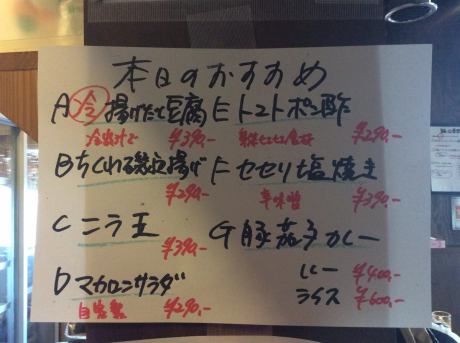 本日のおすすめ
A 冷 揚げたて豆腐
冷出汁で ¥390,-
B ちくわの磯辺揚げ
¥290,-
C ニラ玉
¥390,-
D マカロニサラダ
自家製 ¥290,-
E トマトポン酢
¥290,-
F セセリ塩焼き
辛味噌 ¥390,-
G 豚茄子カレー
ルー ¥400,-
ライス ¥600,-